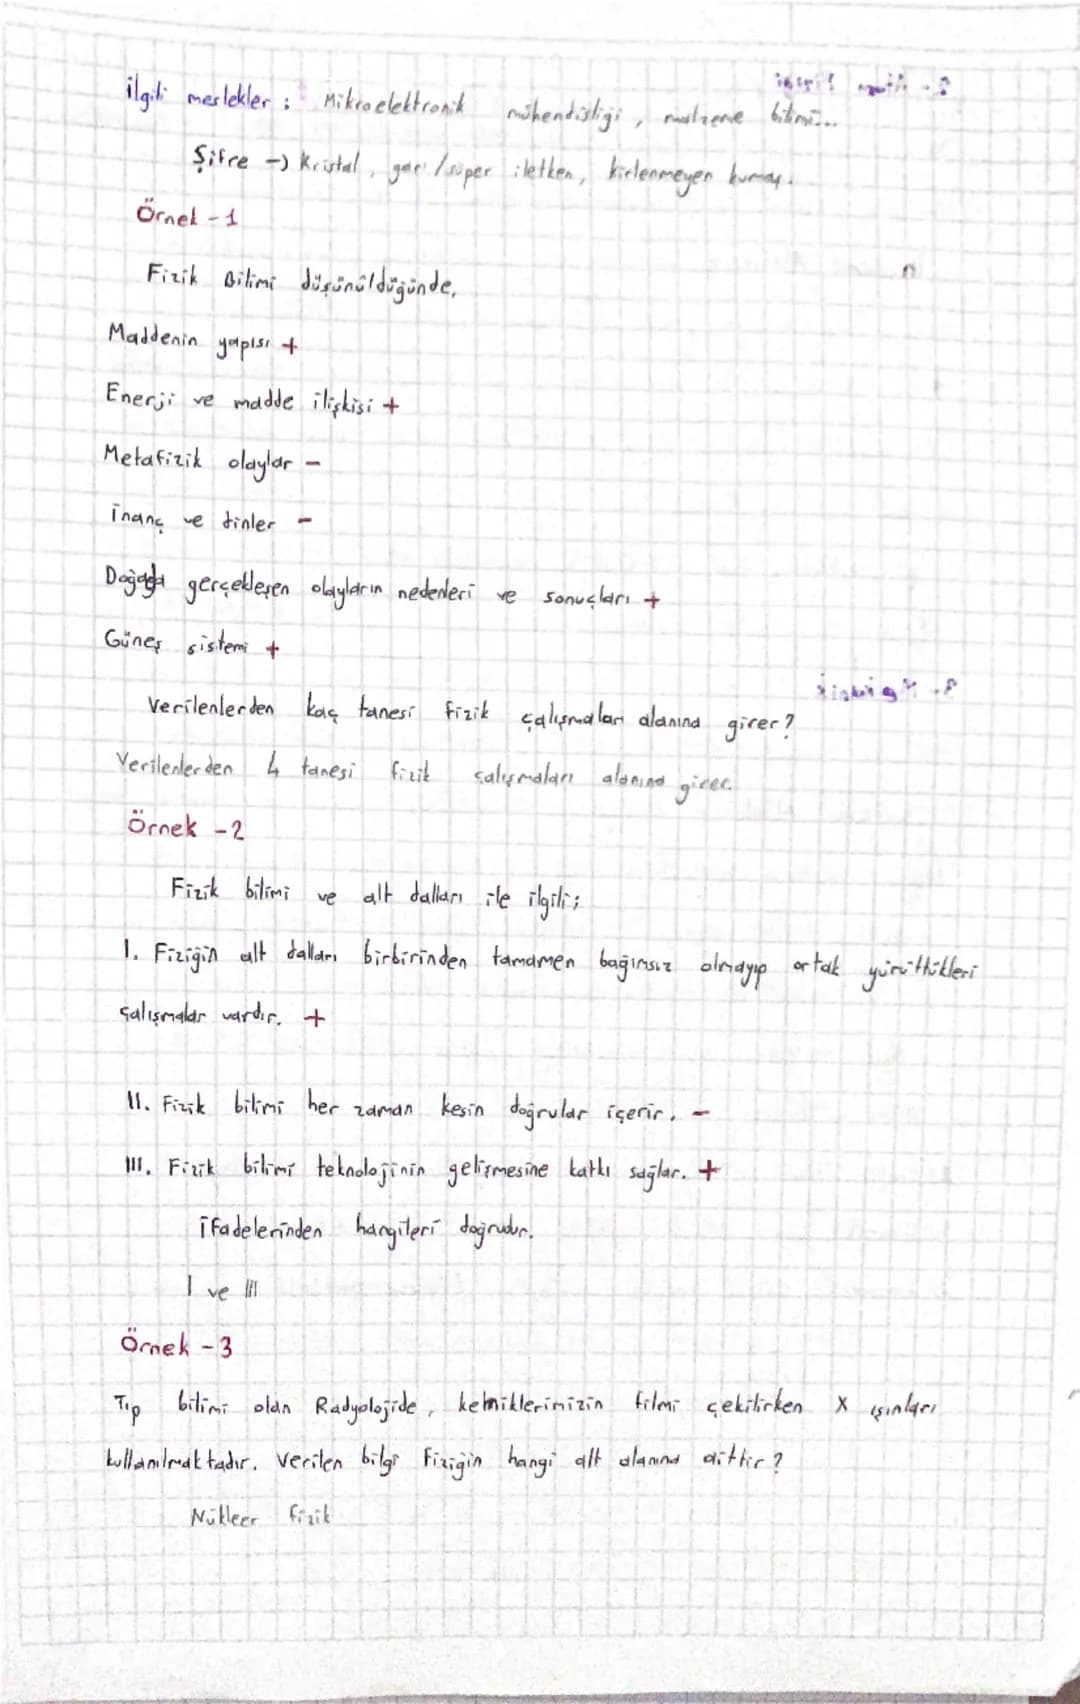 ilgili meslekler : Mikroelektronik mühendisliği, malzeme bilimi...
Şifre -> Kristal, yarı/süper iletken, kirlenmeyen kumaş.
Örnek - 1
Fizik Bilimi düşünüldüğünde,
Maddenin yapısı +
Enerji ve madde ilişkisi +
Metafizik olaylar -
inanç ve dinler -
Doğada gerçekleşen olayların nedenleri ve sonuçları +
Güneş sistemi +
Verilenlerden kaç tanesi fizik çalışmaları alanına girer?
Verilenlerden 4 tanesi fizik çalışmaları alanına girer.
Örnek - 2
Fizik bilimi ve alt dalları ile ilgili;
I. Fiziğin alt dalları birbirinden tamamen bağımsız olmayıp ortak yürüttükleri
çalışmalar vardır. +
II. Fizik bilimi her zaman kesin doğrular içerir. -
III. Fizik bilimi teknolojinin gelişmesine katkı sağlar. +
ifadelerinden hangileri doğrudur.
I ve III
Örnek - 3
Tıp bilimi olan Radyolojide, kemiklerimizin filmi çekilirken X ışınları
kullanılmaktadır. Verilen bilgi fiziğin hangi alt alanına aittir?
Nükleer fizik